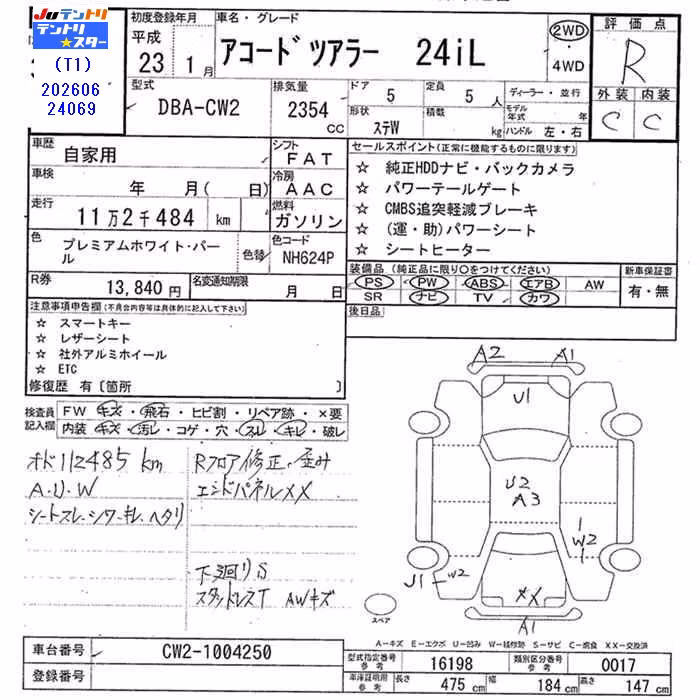 JUテントリ
テントリ★スター
(T1)
202606
24069
初度登録年月
平成
23 1月
車名・グレード
アコードツアラー 24iL
2WD
・
4WD
評価点
R
外装 内装
C C
型式
DBA-CW2
排気量
2354
cc
ドア
5
定員
5 人
形状
ステW
積載
kg
ディーラー・並行
モデル年式 年
ハンドル 左・右
車歴
自家用
シフト
FAT
車検
年 月( 日)
冷房
AAC
走行
11万2千484 km
燃料
ガソリン
色
プレミアムホワイト・パール
色替
色コード
NH624P
R券
13,840円
名変通知期限
月 日
セールスポイント(正常に機能するものに限ります)
☆ 純正HDDナビ・バックカメラ
☆ パワーテールゲート
☆ CMBS追突軽減ブレーキ
☆ (運・助)パワーシート
☆ シートヒーター
装備品(純正品に限り○をつけてください)
PS PW ABS エアB AW
SR ナビ TV カワ
新車保証書
有・無
後日品
注意事項申告欄(不具合内容等は具体的に記入して下さい)
☆ スマートキー
☆ レザーシート
☆ 社外アルミホイール
☆ ETC
修復歴 有〔箇所 〕
検査員記入欄
FW キズ・飛石・ヒビ割・リペア跡・×要
内装 キズ・汚レ・コゲ・穴・スレ・キレ・破レ
オド112485km
A.U.W
シートスレ・シワ・キレ・ヘタリ
Rフロア修正・歪み
エンドパネルXX
下廻りS
スタッドレスT AWキズ
A2 A1
U1
U2
A3
W2
U1 W2
XX
A1
スペア
A-キズ E-エクボ U-凹み W-補修跡 S-サビ C-腐食 XX-交換済
車台番号
CW2-1004250
登録番号
型式指定番号
参考
16198
類別区分番号
参考
0017
車庫証明用
参考
長さ 475 cm
幅 184 cm
高さ 147 cm